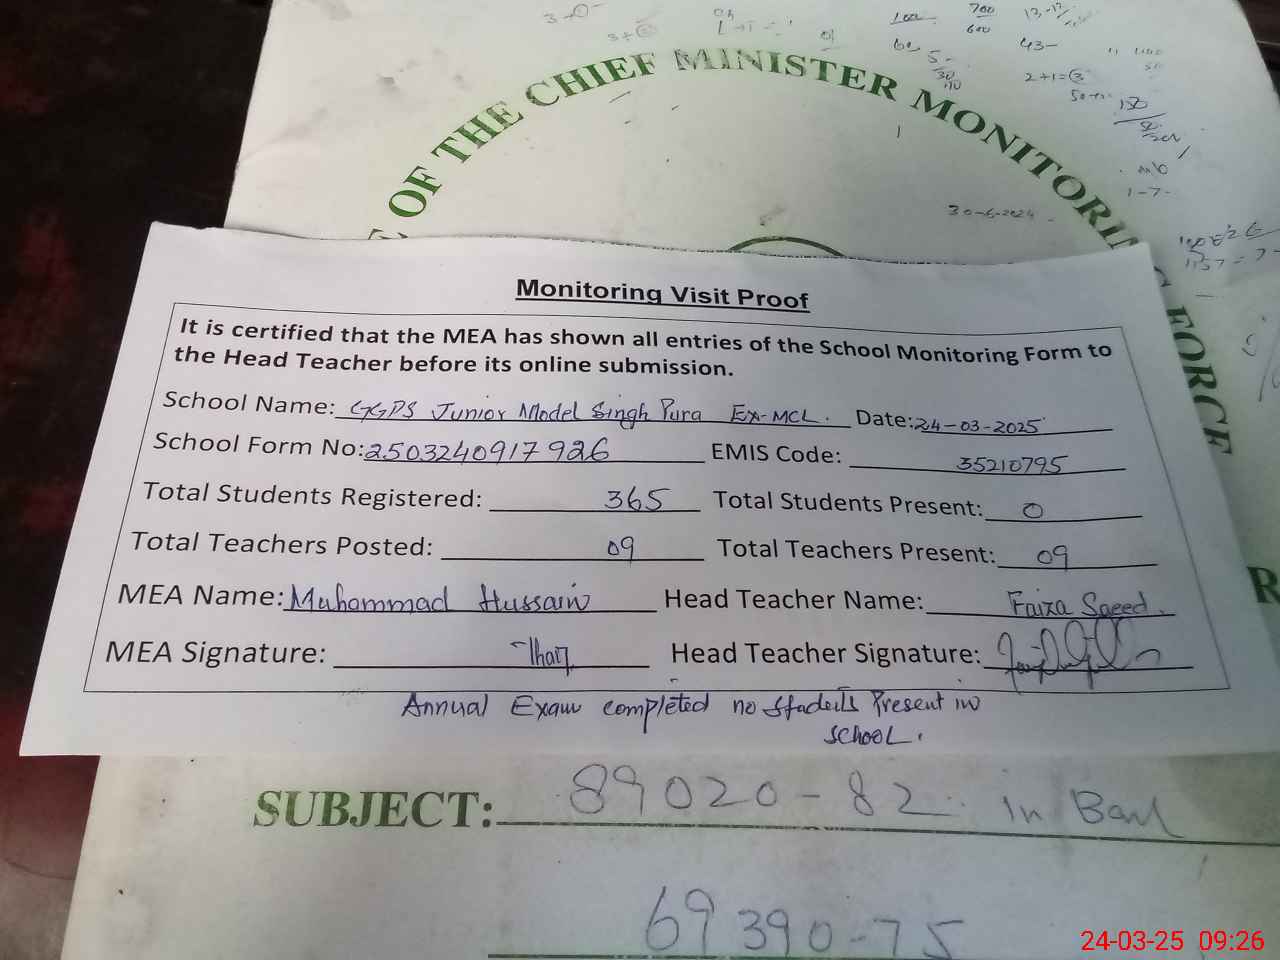 3-0-
700
600
100
43-
2+1=3
150
1-7-
30-6-2024
OF THE CHIEF MINISTER MONITORING FORCE
Monitoring Visit Proof
It is certified that the MEA has shown all entries of the School Monitoring Form to
the Head Teacher before its online submission.
School Name: GGPS Junior Model Singh Pura Ex-MCL. Date: 24-03-2025
School Form No: 2503240917926 EMIS Code: 35210795
Total Students Registered: 365 Total Students Present: 0
Total Teachers Posted: 09 Total Teachers Present: 09
MEA Name: Muhammad Hussain Head Teacher Name: Faiza Saeed.
MEA Signature: Head Teacher Signature:
Annual Exam completed no students Present in
school.
SUBJECT: 89020-82 in Bank
69390-75
R
24-03-25 09:26